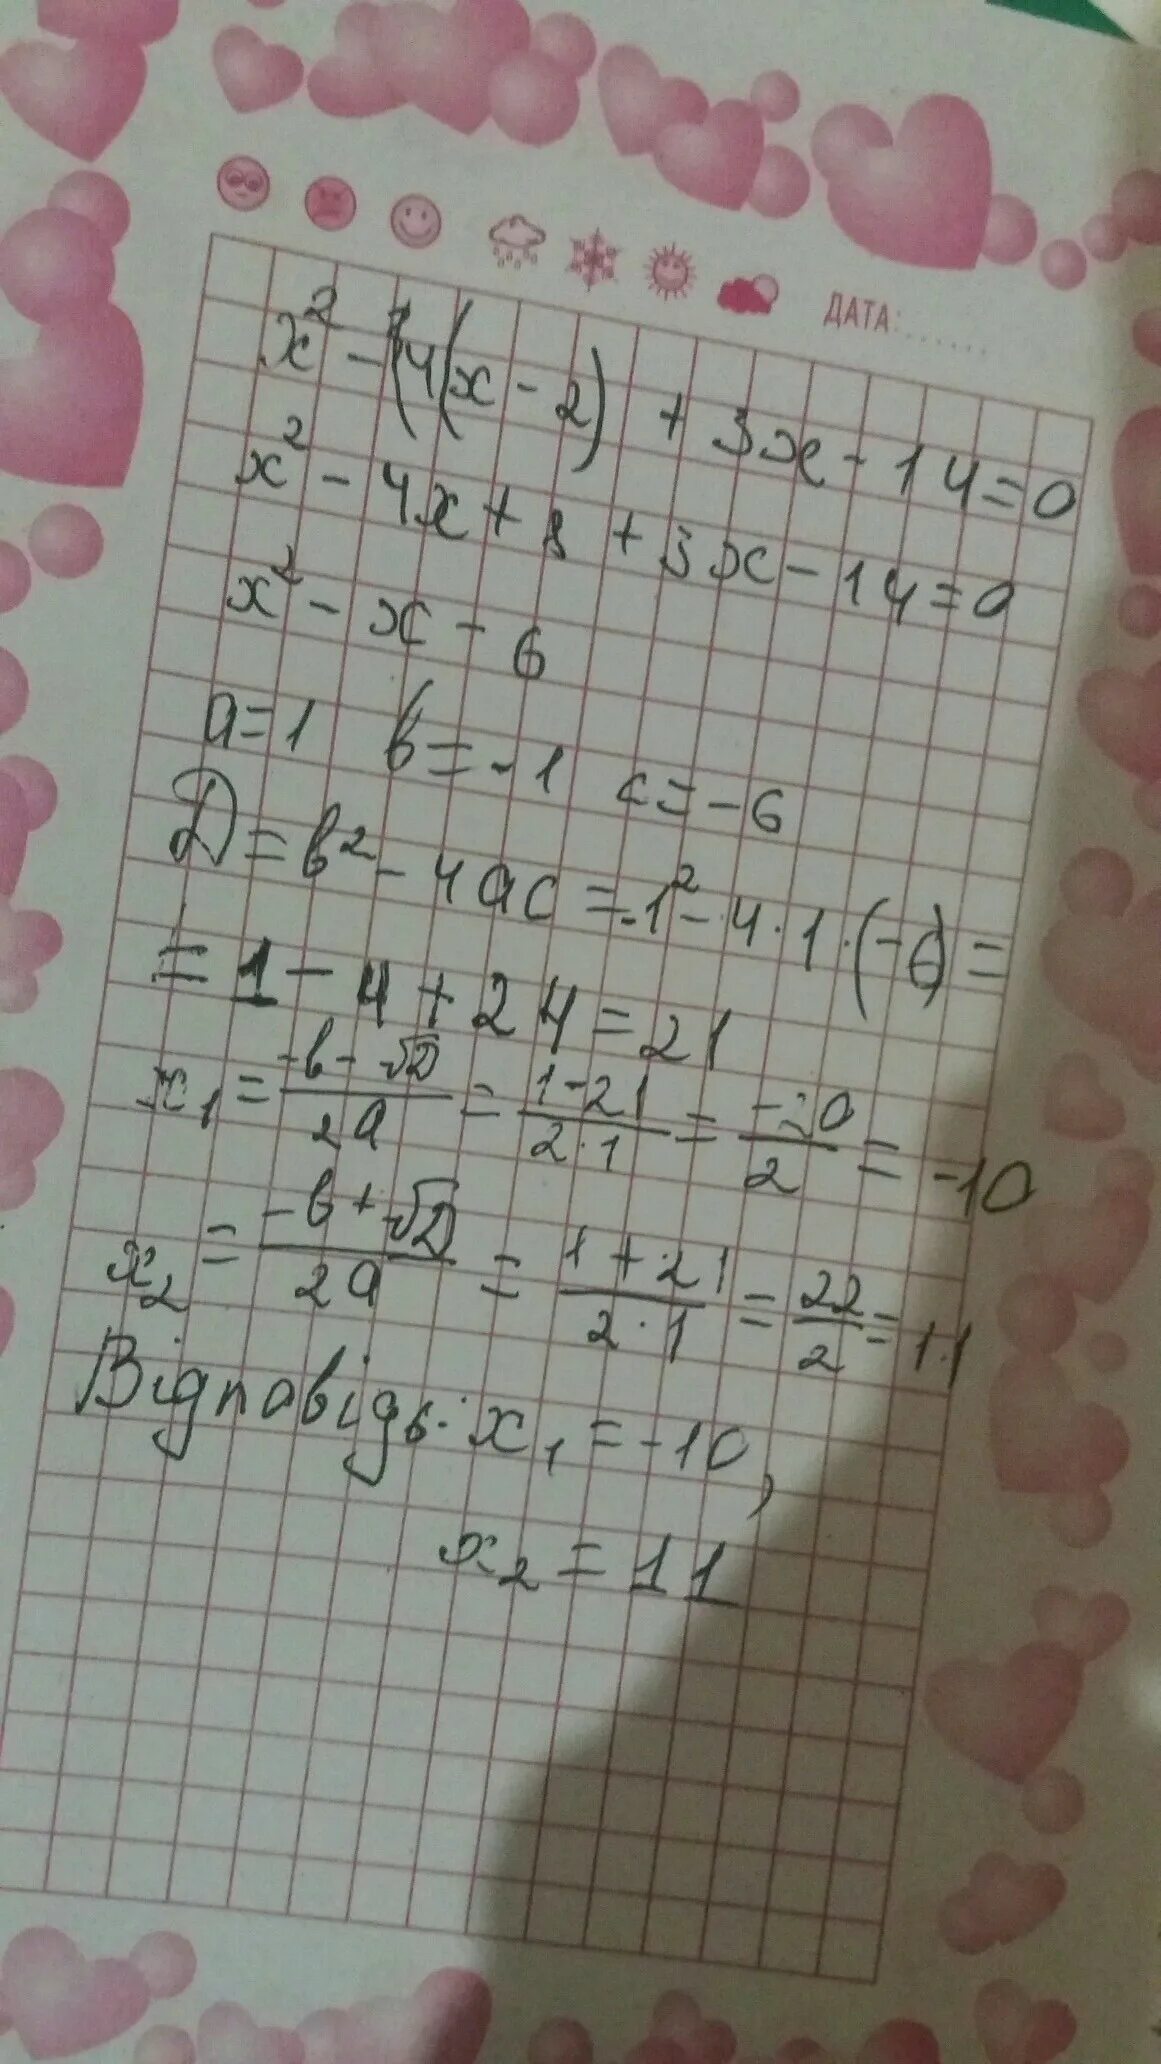 ДАТА:......
x² - (4(x - 2) + 3x - 14 = 0
x² - 4x + 8 + 3x - 14 = 0
x² - x - 6
a = 1 b = -1 c = -6
D = b² - 4ac = -1² - 4·1·(-6) =
= 1 - 4 + 24 = 21
x₁ = (-b - √D)/(2a) = (1 - 21)/(2·1) = (-20)/2 = -10
x₂ = (-b + √D)/(2a) = (1 + 21)/(2·1) = 22/2 = 11
Відповідь: x₁ = -10,
x₂ = 11